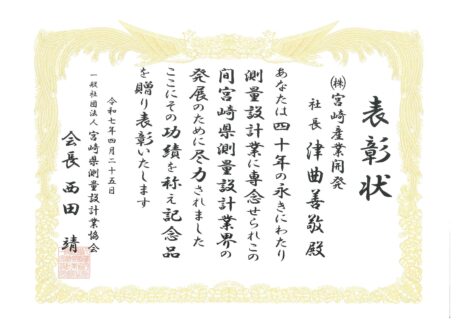 表彰状
㈱宮崎産業開発
社長 津曲善敬殿
あなたは四十年の永きにわたり
測量設計業に専念せられこの
間宮崎県測量設計業界の
発展のために尽力されました
ここにその功績を称え記念品
を贈り表彰いたします
令和七年四月二十五日
一般社団法人 宮崎県測量設計業協会
会長 西田 靖